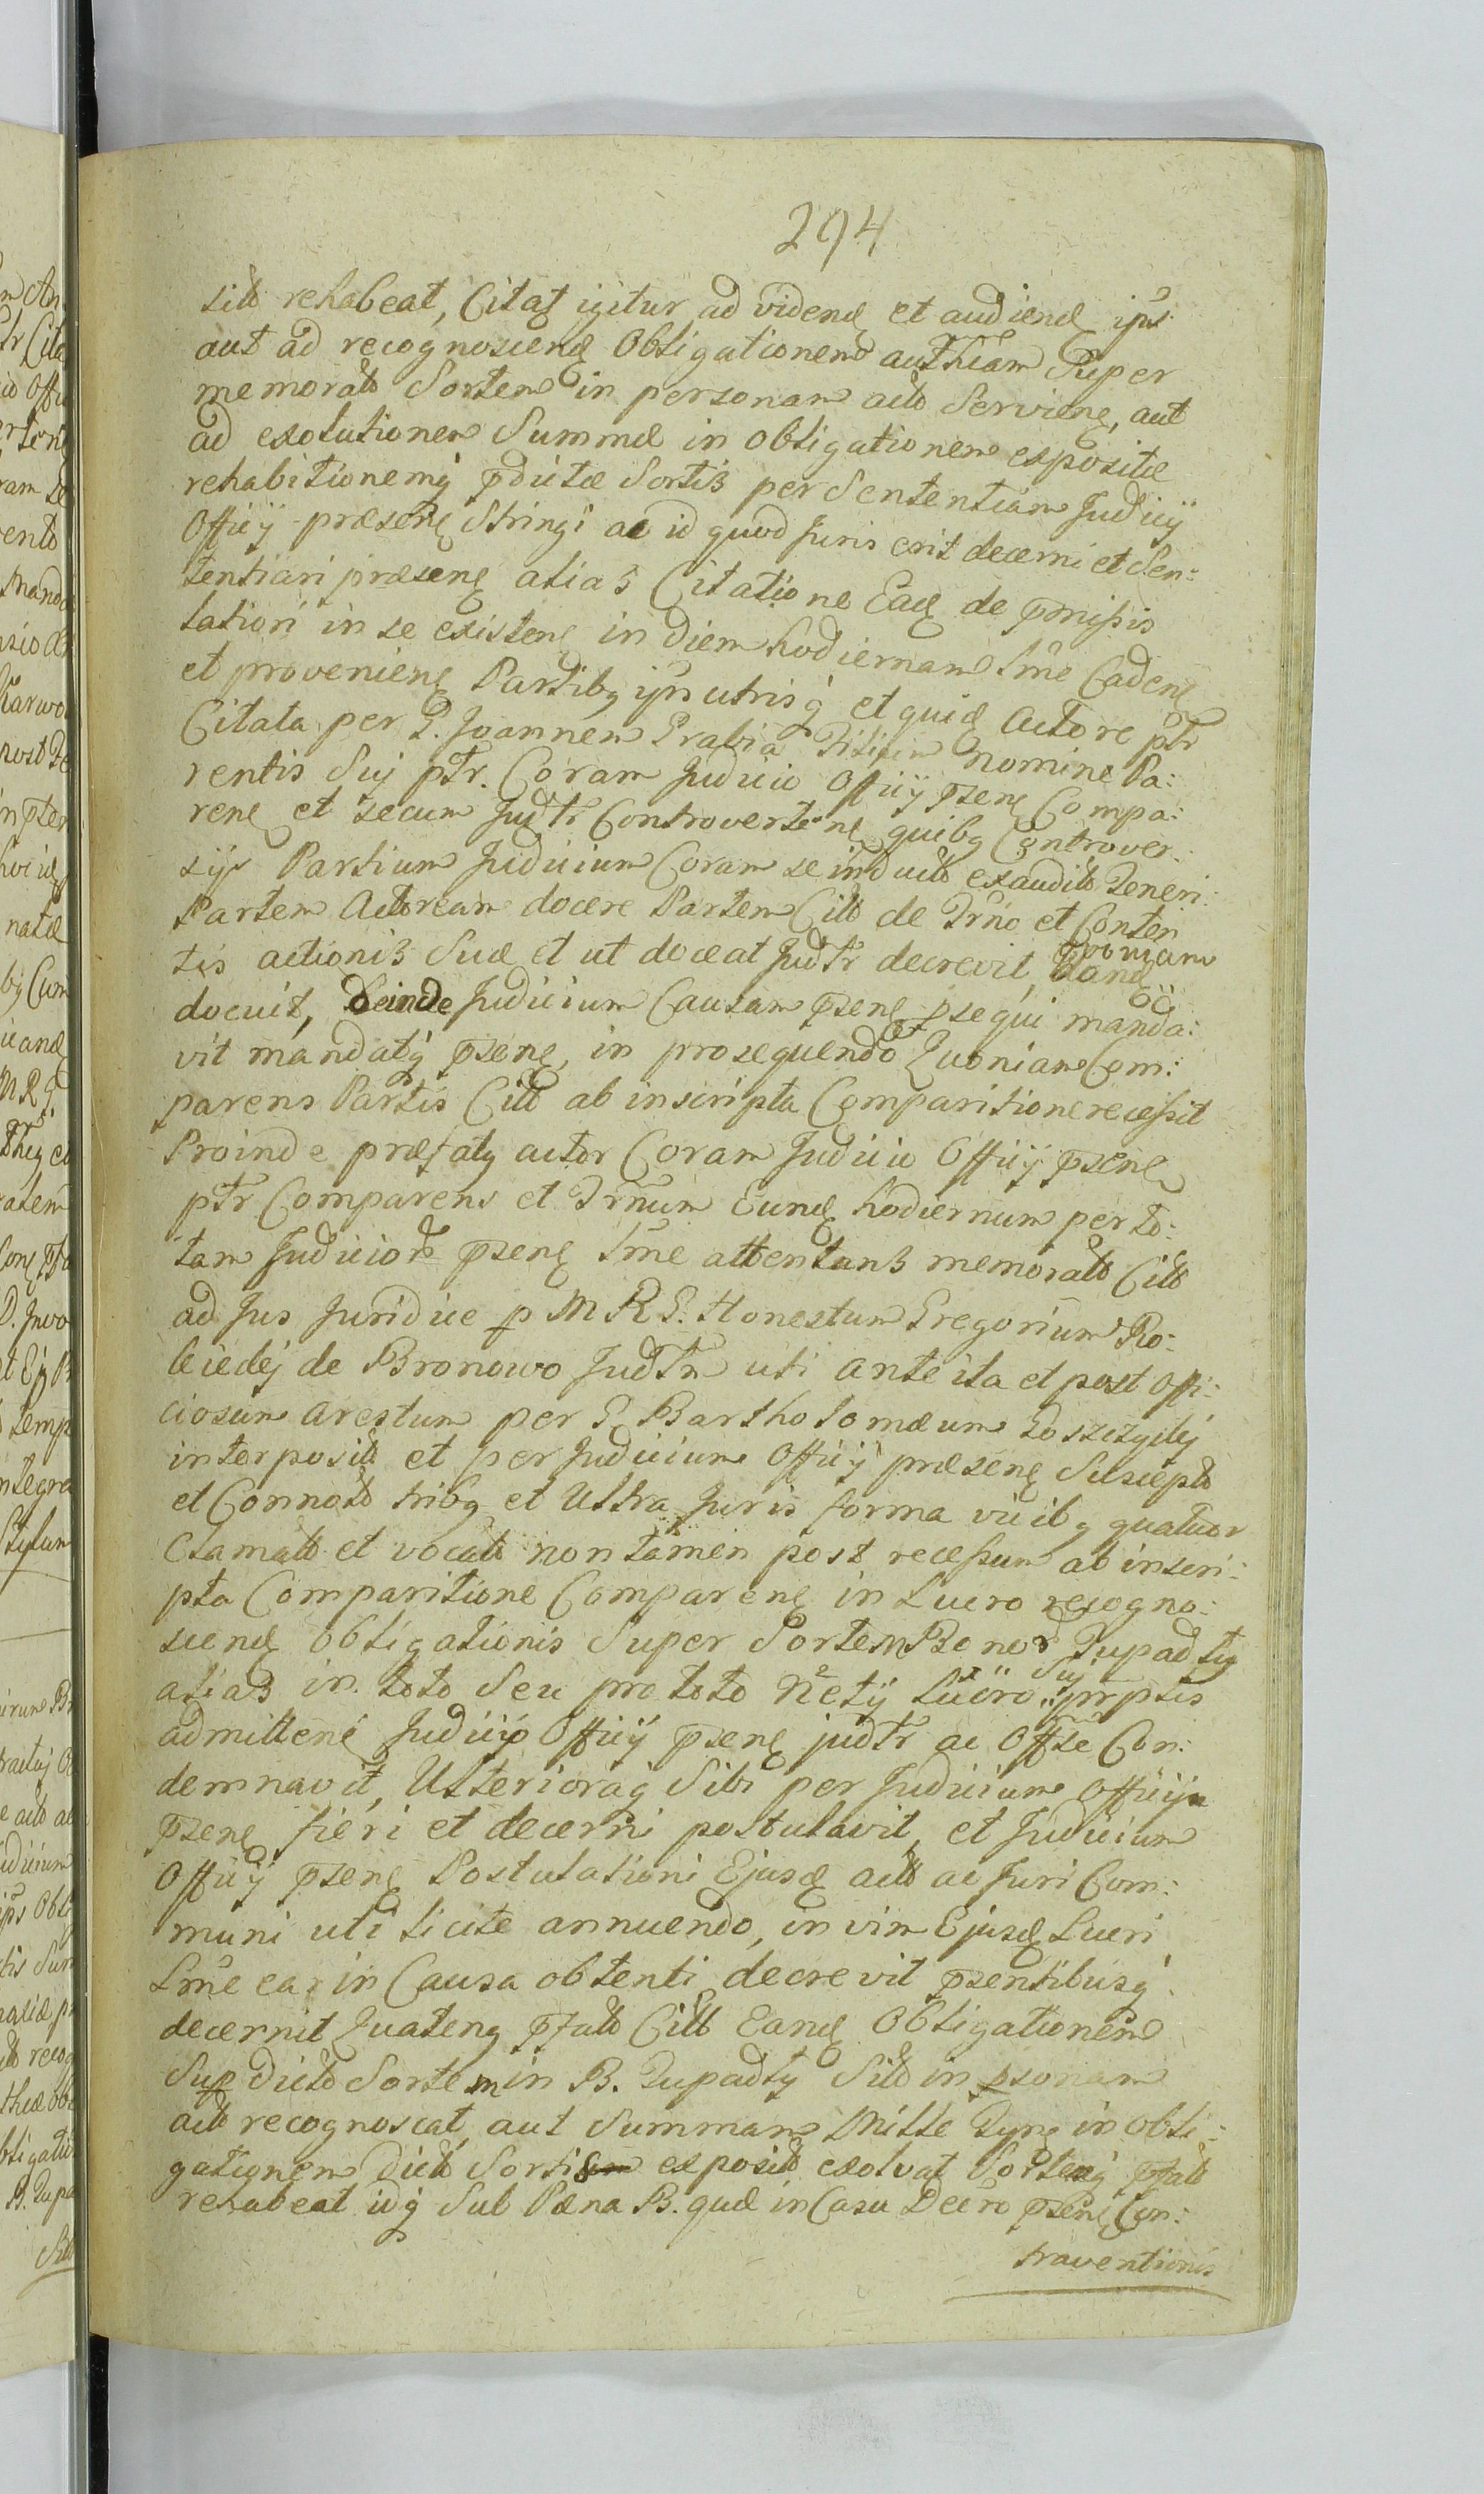 294
sibi rehabeat, Citat igitur ad videnđ et audienđ ips
aut ad recognoscenđ Obligationem authcam Super
memorato Sortem in personam acto Serviene, aut
ad exolutionem Summæ in obligationem expositæ
rehabitionemq pdictæ Sortis per Sententiam Judicij
Officij præsene Stringi ac id quod Juris erit decerni et Sen:
tentiari præsene alias Citatione Eadē de pmissis
latiori in se existene in diem hodiernam lme Cadene
et proveniene Partibq ipsis utrisq et quid Actore ptr
Citata per G. Joannem Grabia nomine Pa:
rentis Sui ptr. Coram Judicio Officij psene Compa:
rene et secum Judtr Controvertene quibq Controver:
sijs Partium Judicium Coram se inducto exaudito Teneri
Partem Actoream docere Partem Citto de Trno et Conten
tis actionis Suæ et ut doceat Judtr decrevit,
docuit, Deinde Judicium Causam psene psequi manda:
vit mandatq psene, in prosequendo Quoniam Com:
parens Partis Citto ab inscripta Comparitione recessit
Proinde præfatq actor Coram Judicio Officij psene
ptr Comparens et Trnum Eundē hodiernum per to:
tam Judicior psene lme attentans memorato Citto
ad Jus Juridice p M R G. Honestum Gregorium Ro:
ciedej de Bronowo Judtr uti ante ita et post Offi:
ciosum arestum per G Bartholomæum Goszczyckj
interposito et per Judicium Officij præsene Suscepto
et Connoto tribq et Ultra Juris forma vicibq quatuor
Clamato et vocato non tamen post recessum ab inscri:
pta Comparitione Comparene in Lucro recogno:
scenđ obligationis Super Sortem Bonor Dupadtij
alias in toto Seu pro toto Nētij lucro Suij prptis
admittenē Judicijo Officij psene judtr ac Offse Con:
demnavit, Ulterioraq Sibi per Judicium Officij
psene fieri et decerni postulavit, et Judicium
Officij psene Postulationi Ejusđ acto ac Juri Com:
muni uti licite annuendo, in vim Ejusđ Lucri
lme eaz in Causa obtenti decrevit psentibusq
decernit Quatenq pfato Citto Eandē Obligationem
Sup dicto Sortem in B. Dupadty Sito in psonam
acto recognoscat, aut Summam Mille Tynf in obli:
gationem dicto Sortis exposito exolvat Sortemq pfato
rehabeat idq Sub Pæna B. quæ in Casu Decro psene Con:
traventionis